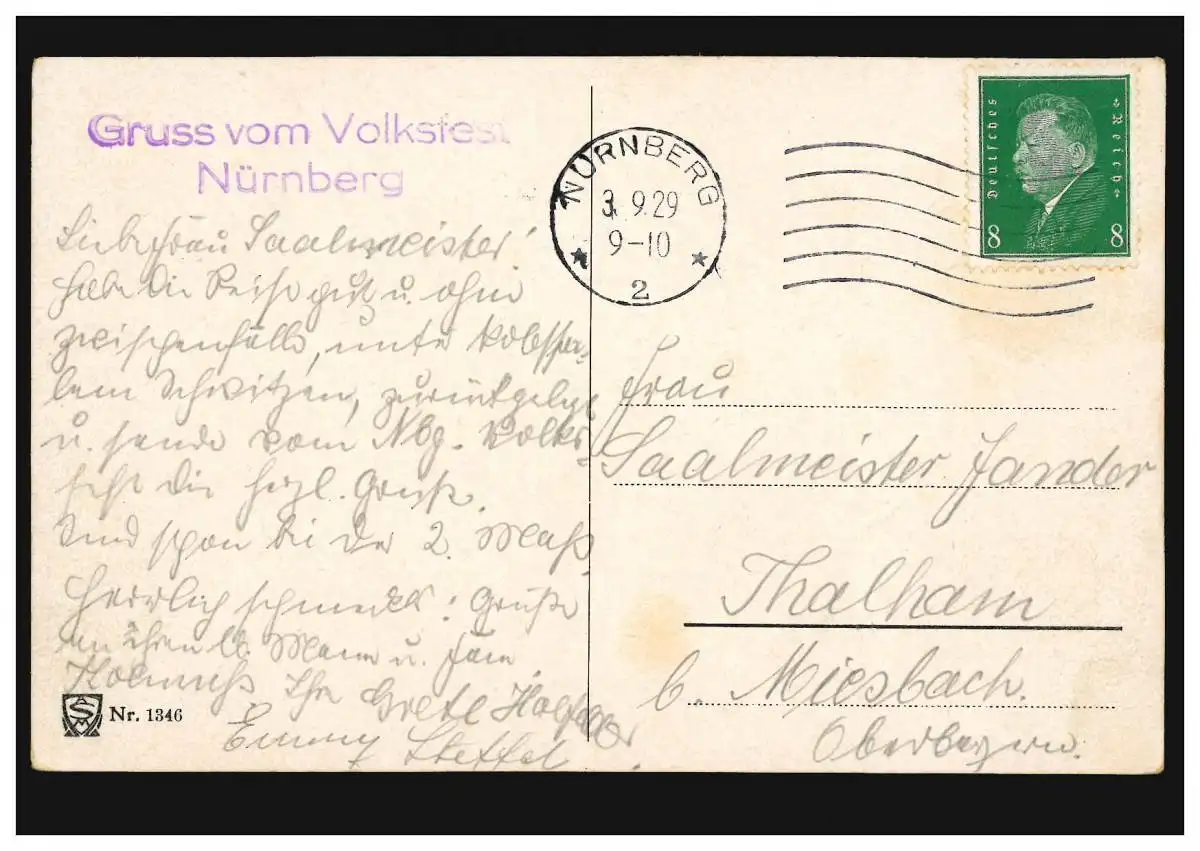 Gruss vom Volksfest
Nürnberg
Liebe Frau Saalmeister!
Habe die Reise gut u. ohne
zwischenfälle, unter
Schwitzen, zurückgelegt
u. sende vom Nbg. Volks-
fest die herzl. Grüße.
Sind schon bei der 2. Mass.
Herrlich schmeckts! Grüße
an Ihren lb. Mann u. Fam.
Ihr Gretl
Emmy Steffel
Nr. 1346
NÜRNBERG
3.9.29
9-10
2
Deutsches Reich
8 8
Frau
Saalmeister Jander
Thalham
b. Miesbach.
Oberbayern.